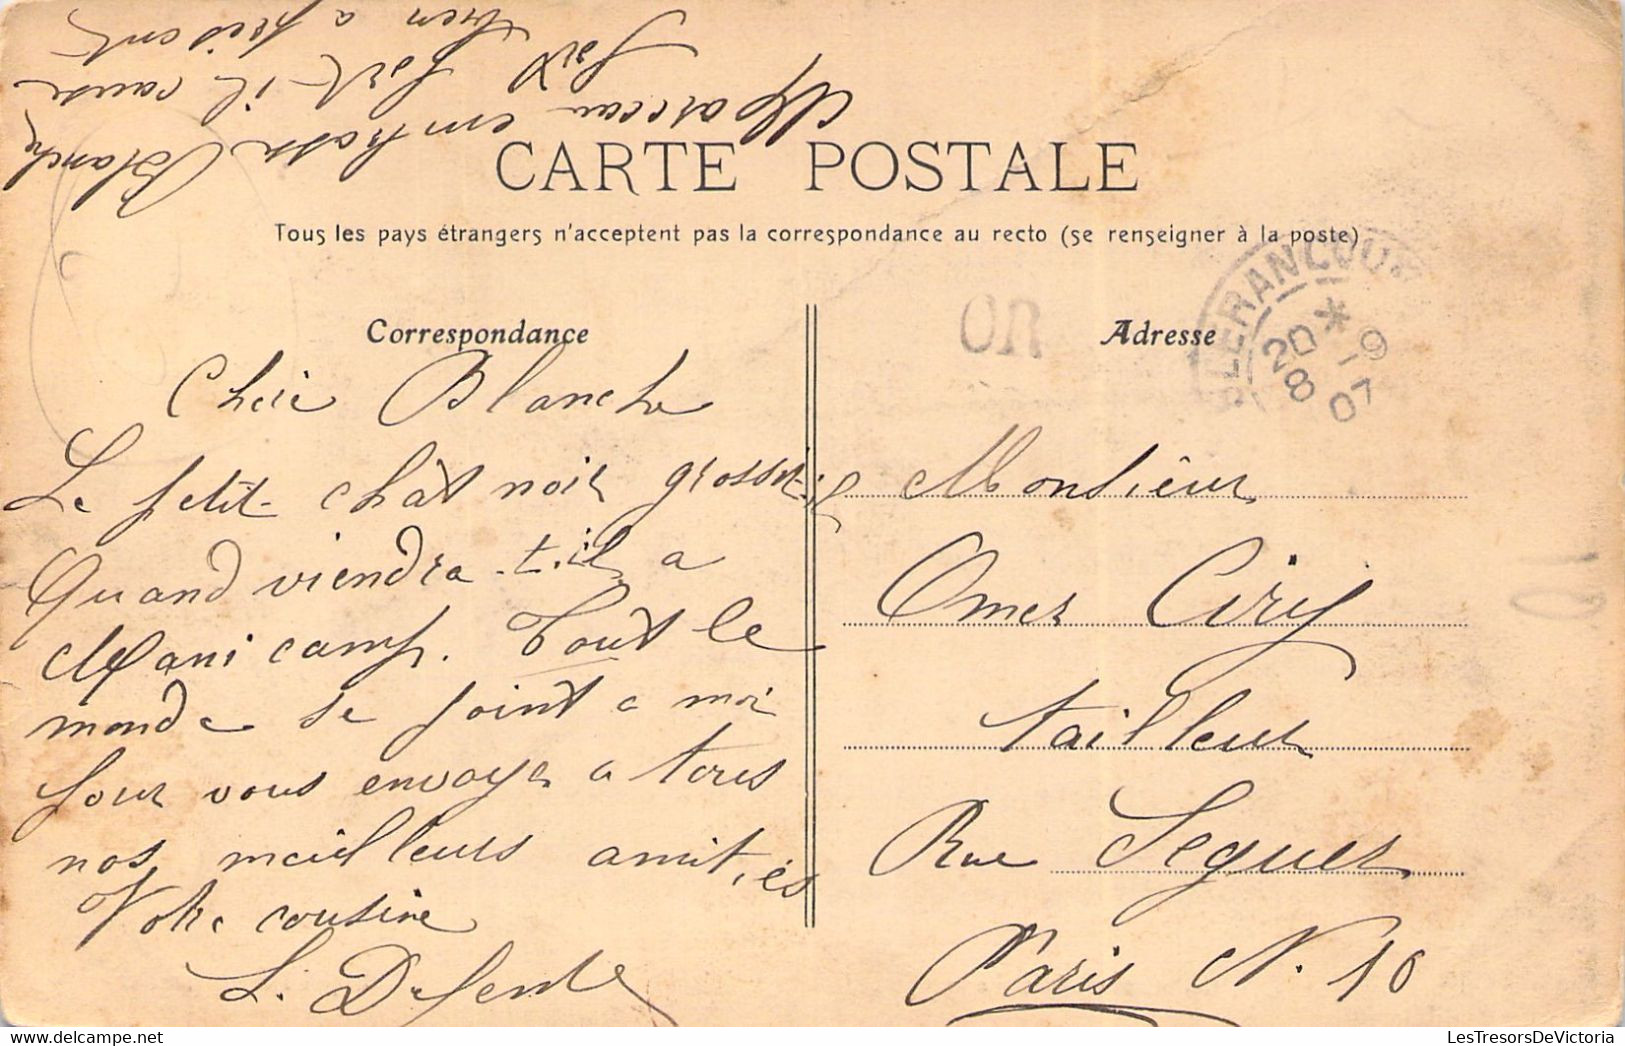 Marceau embrasse Blanche
fort fort il cause
bien a présent
CARTE POSTALE
Tous les pays étrangers n'acceptent pas la correspondance au recto (se renseigner à la poste)
Correspondance
Chère Blanche
Le petit chât noir grossit
Quand viendra-t-il a
Manicamp. Tout le
monde se joint a moi
pour vous envoyer a tous
nos meilleurs amitiés
Votre cousine
L.
OR
Adresse
BLERANCOURT
20 * 8 -9 07
Monsieur
Omer Ciry
tailleur
Rue Seguier
Paris N. 10
LesTresorsDeVictoria.com